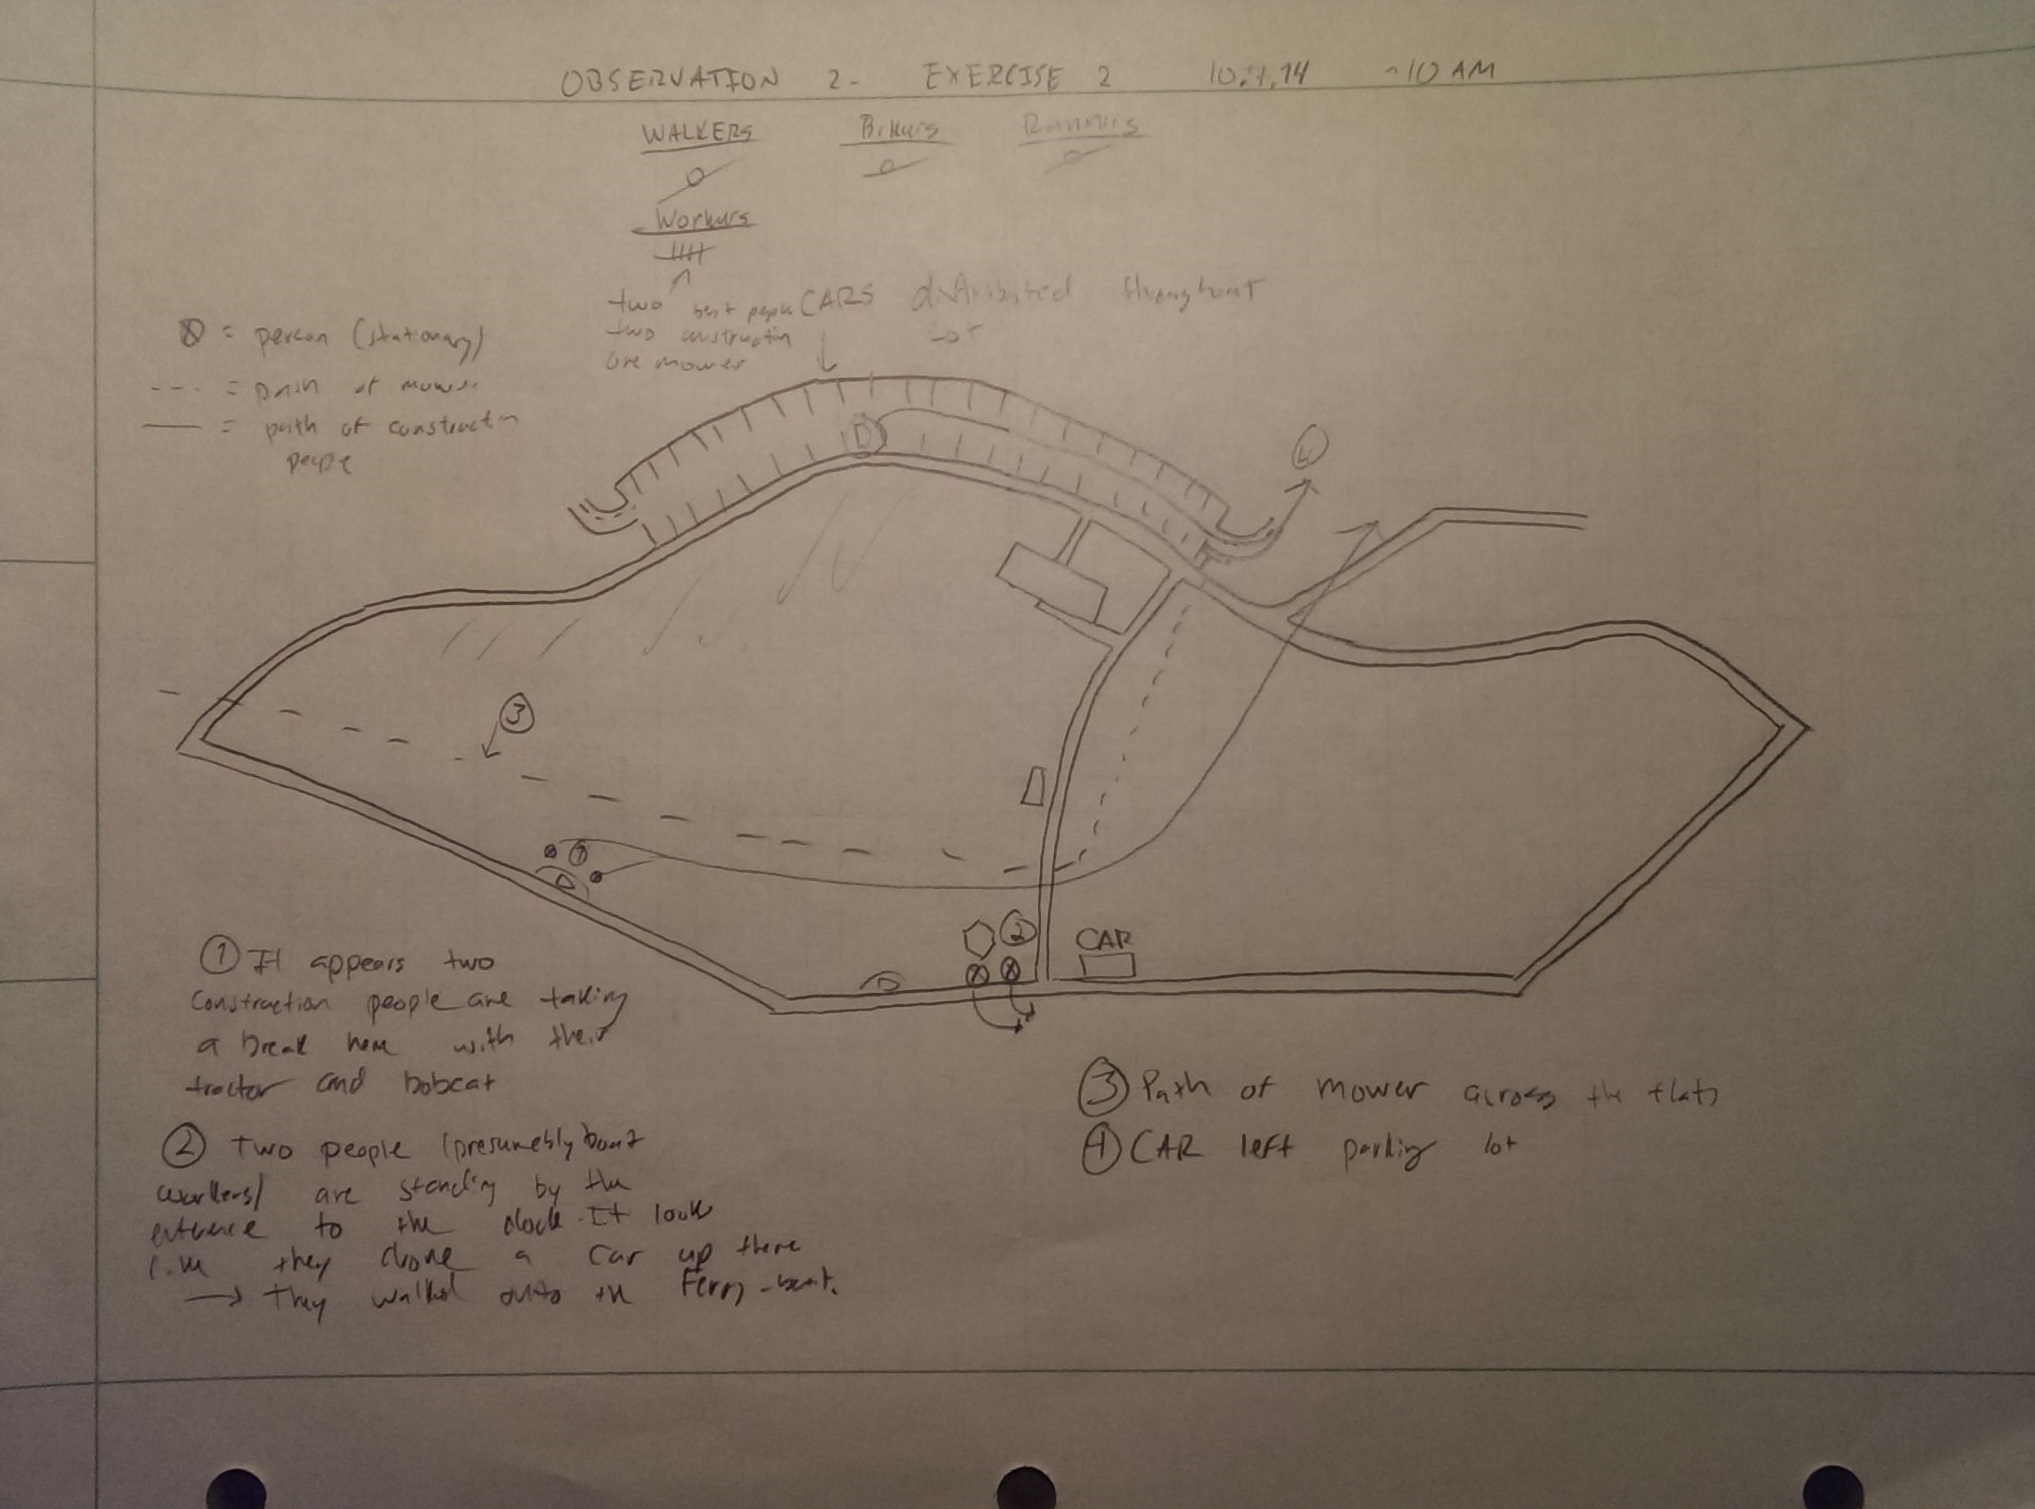 OBSERVATION 2 - EXERCISE 2 10.7.14 ~10 AM
WALKERS Bikers Runners
0 0 0
Workers
two boat people
two construction
one mower
CARS distributed throughout
lot
⊗ = person (stationary)
--- = path of mower
— = path of construction
people
D
4
3
1
D
2
CAR
D
① It appears two
construction people are taking
a break here with their
tractor and bobcat
② Two people (presumebly boat
workers) are standing by the
entrence to the dock. It looks
like they drove a car up there
→ They walked onto the Ferry-boat.
③ Path of mower across the flats
④ CAR left parking lot